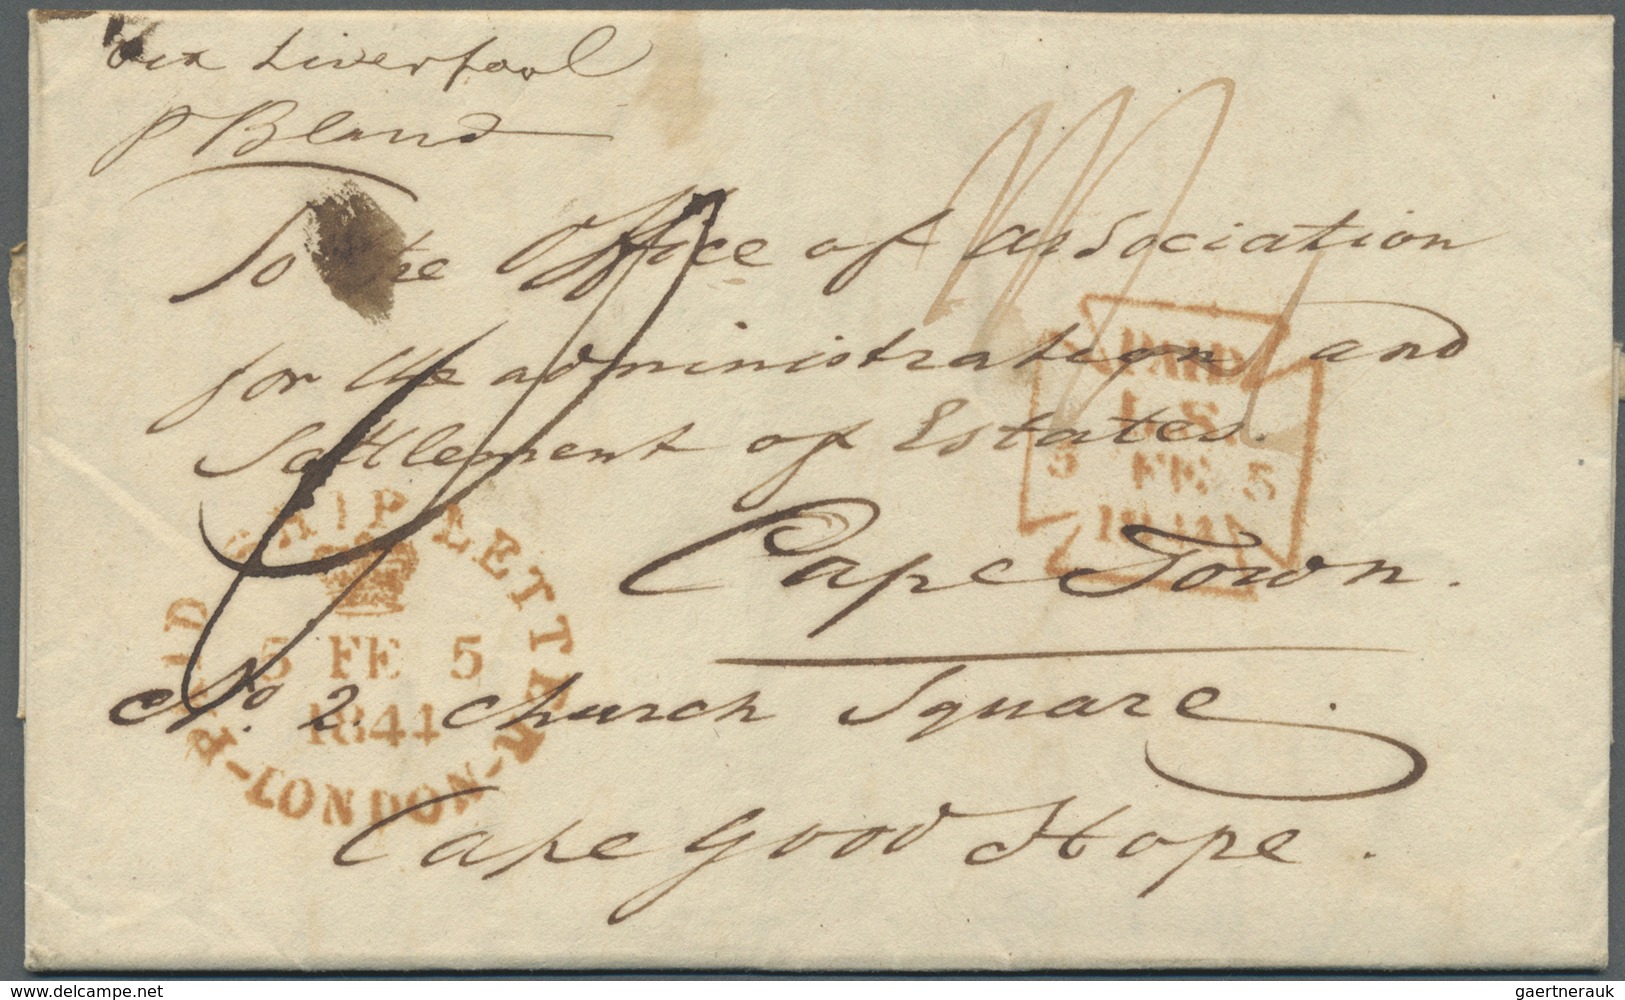 via Liverpool
p Bland
To the Office of association
for the administration and
Settlement of Estates.
Cape Town.
No. 2. Church Square.
Cape Good Hope.
PAID SHIP LETTER
5 FE 5
1844
-LONDON-
PAID
LS
5 FE 5
1844
www.delcampe.net
gaertnerauk